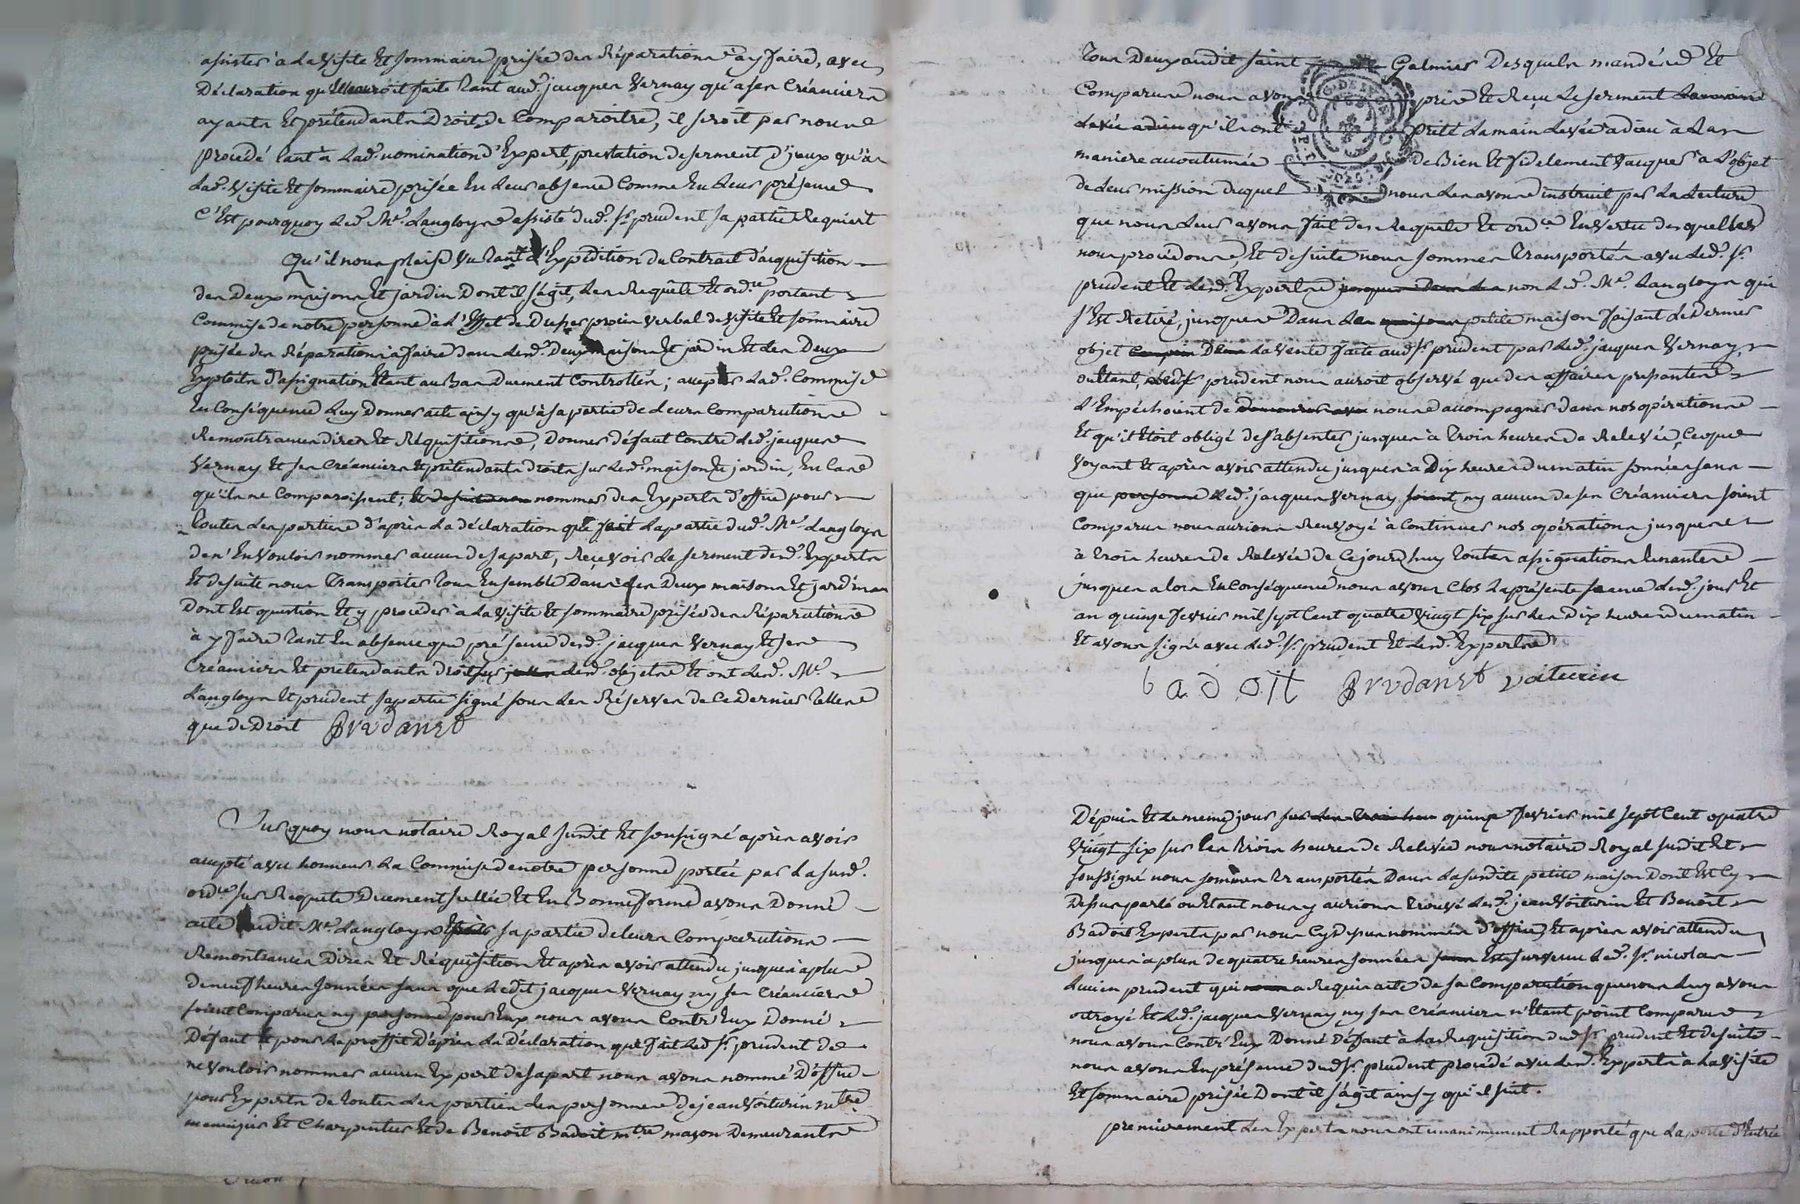 assister à la visite Et sommaire prisée des Réparations à y faire, avec
Déclaration qu'il auroit faite tant aud. jacques Vernay qu'a ses Créanciers
ayants Et prétendants Droits de Comparoitre, il seroit par nous
procédé tant à lad. nomination d'Expert prestation de serment d'jceux qu'à
lad. visite Et sommaire prisée En leur absence Comme En leur présence
C'Est pourquoy led. Me. Langloys assisté dud. sr. prudent sa partie Requiert
Qu'il nous plaise Vu tant l'Expédition du Contrat d'acquisition
des Deux maisons Et jardin Dont il s'agit, les Requête Et ordce. portant
Commise de notre personne à l'Effet de Dresser procès verbal de visite Et sommaire
prisée des Réparations à faire dans lesd. Deux maisons Et jardin Et les Deux
Exploits d'assignation Etant au Bas Duement Controllés; accepter lad. Commise
En Conséquence luy Donner acte ainsy qu'à sa partie de leurs Comparutions
Remontrances dires Et Réquisitions, Donner défaut Contre led. jacques
Vernay Et ses Créanciers Et prétendants droits sur lesd. maisons Et jardin, En Cas
qu'ils ne Comparoissent; nommer des Experts d'office pour
toutes les parties d'après la déclaration que fait la partie dud. Me. Langloys
de n'En vouloir nommer aucun de sa part, Recevoir le serment desd. Experts
Et de suite nous transporter tous Ensemble Dans les Deux maisons Et jardins
Dont Est question Et y procéder à la visite Et sommaire prisée des Réparations
à y faire tant En absence que présence dud. jacques Vernay Et ses
Créanciers Et prétendants droits sur lesd. objets Et ont led. Me.
Langloys Et prudent sa partie signé sous les Réserves de Ce Dernier telles
que de Droit Prudanst
Sur quoy nous notaire Royal susdit Et soussigné après avoir
accepté avec honneur la Commise de notre personne portée par la susd.
ordce. sur Requête Duement scellée Et En Bonne forme avons Donné
acte audit Me. Langloys sa partie de leurs Comparutions
Remontrances Dires Et Réquisition Et après avoir attendu jusques à plus
de neuf heures sonnées sans que ledit jacques Vernay ny ses Créanciers
soient Comparus ny personne pour Eux nous avons Contr'Eux Donné
Défaut Et pour le proffit D'après la Déclaration que fait led. sr. prudent de
ne vouloir nommer aucun Expert de sa part nous avons nommé D'office
pour Experts de toutes les parties les personnes de jean Voiturin mtre
menuisier Et Charpentier Et de Benoit Badoit mtre maçon Demeurants
tous Deux audit saint Galmier Desquels mandés Et
Comparus nous avons pris Et Reçu le serment
qu'ils ont prété la main levée a dieu à la
maniere accoutumée de Bien Et fidelement vacquer à l'objet
de leur mission duquel nous les avons instruit par la lecture
que nous leur avons fait des Requete Et ordce. En vertu desquelles
nous procédons, Et de suite nous sommes transportés avec led. sr.
prudent Et lesd. Experts non led. Me. Langloys qui
s'Est Retiré, jusques Dans la petite maison faisant le dernier
objet De la vente faite aud. sr. prudent par led. jacques Vernay,
ou Etant, led. sr. prudent nous auroit observé que des affaires pressantes
l'Empéchoint de nous accompagner dans nos opérations
Et qu'il Etoit obligé de s'absenter jusques à trois heures de Relevée, Ce que
voyant Et après avoir attendu jusques à Dix heures du matin sonnées sans
que led. jacques Vernay ny aucun de ses Créanciers soient
Comparus nous aurions Renvoyé à Continuer nos opérations jusques
à trois heures de Relevée de Ce jourd'huy toutes assignations tenantes
jusques a lors En Conséquence nous avons Clos la présente séance lesd. jour Et
an quinze février mil sept Cent quatre vingt six sur les dix heures du matin
Et avons signé avec led. sr. prudent Et lesd. Experts
badoit Prudanst voiturin
Dépuis Et le meme jour quinze février mil sept Cent quatre
vingt six sur les trois heures de Relevée nous notaire Royal susdit Et
soussigné nous sommes transportés Dans la susdite petite maison Dont Est Cy
Dessus parlé ou Etant nous y aurions trouvé lesd. jean Voiturin Et Benoit
Badoit Experts par nous Cy dessus nommés d'office, Et après avoir attendu
jusques à plus de quatre heures sonnées Est survenu led. sr. nicolas
Lucien prudent qui a Requis acte de sa Comparution que nous luy avons
octroyé Et led. jacques Vernay ny ses Créanciers n'Etant point Comparus
nous avons Contr'Eux Donné Défaut à la Réquisition dud. sr. prudent Et de suite
nous avons En présence dud. sr. prudent procédé avec lesd. Experts à la visite
Et sommaire prisée Dont il s'agit ainsy qu'il suit.
premierement les Experts nous ont unanimement Rapporté que la porte d'Entrée